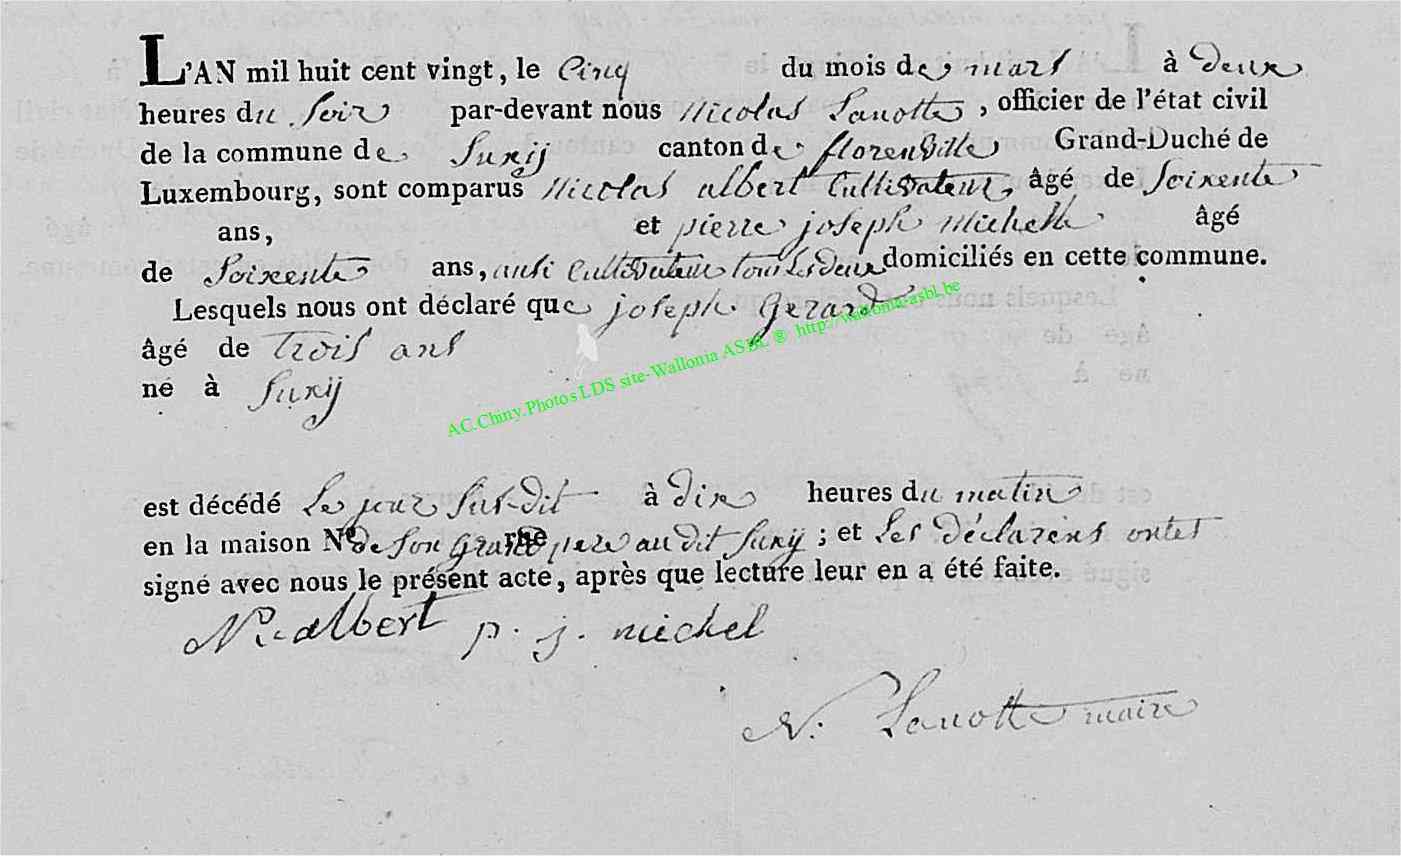 L'AN mil huit cent vingt, le Cinq du mois de mars à deux
heures du Soir par-devant nous Nicolas Lanotte, officier de l'état civil
de la commune de Suxij canton de florenville Grand-Duché de
Luxembourg, sont comparus Nicolas albert Cultivateur, âgé de Soixente
ans, et pierre joseph michelle âgé
de Soixente ans, ausi Cultivateur tous Les deux domiciliés en cette commune.
Lesquels nous ont déclaré que joseph Gerard
âgé de trois ans
né à Suxij
AC.Chiny.Photos LDS site-Wallonia ASBL ® http://wallonia-asbl.be
est décédé Le jour Sus-dit à dix heures du matin
en la maison N° de Son Grand pere au dit Suxij ; et Les déclarens ontet
signé avec nous le présent acte, après que lecture leur en a été faite.
Nic albert p. j. michel
N. Lanotte maire